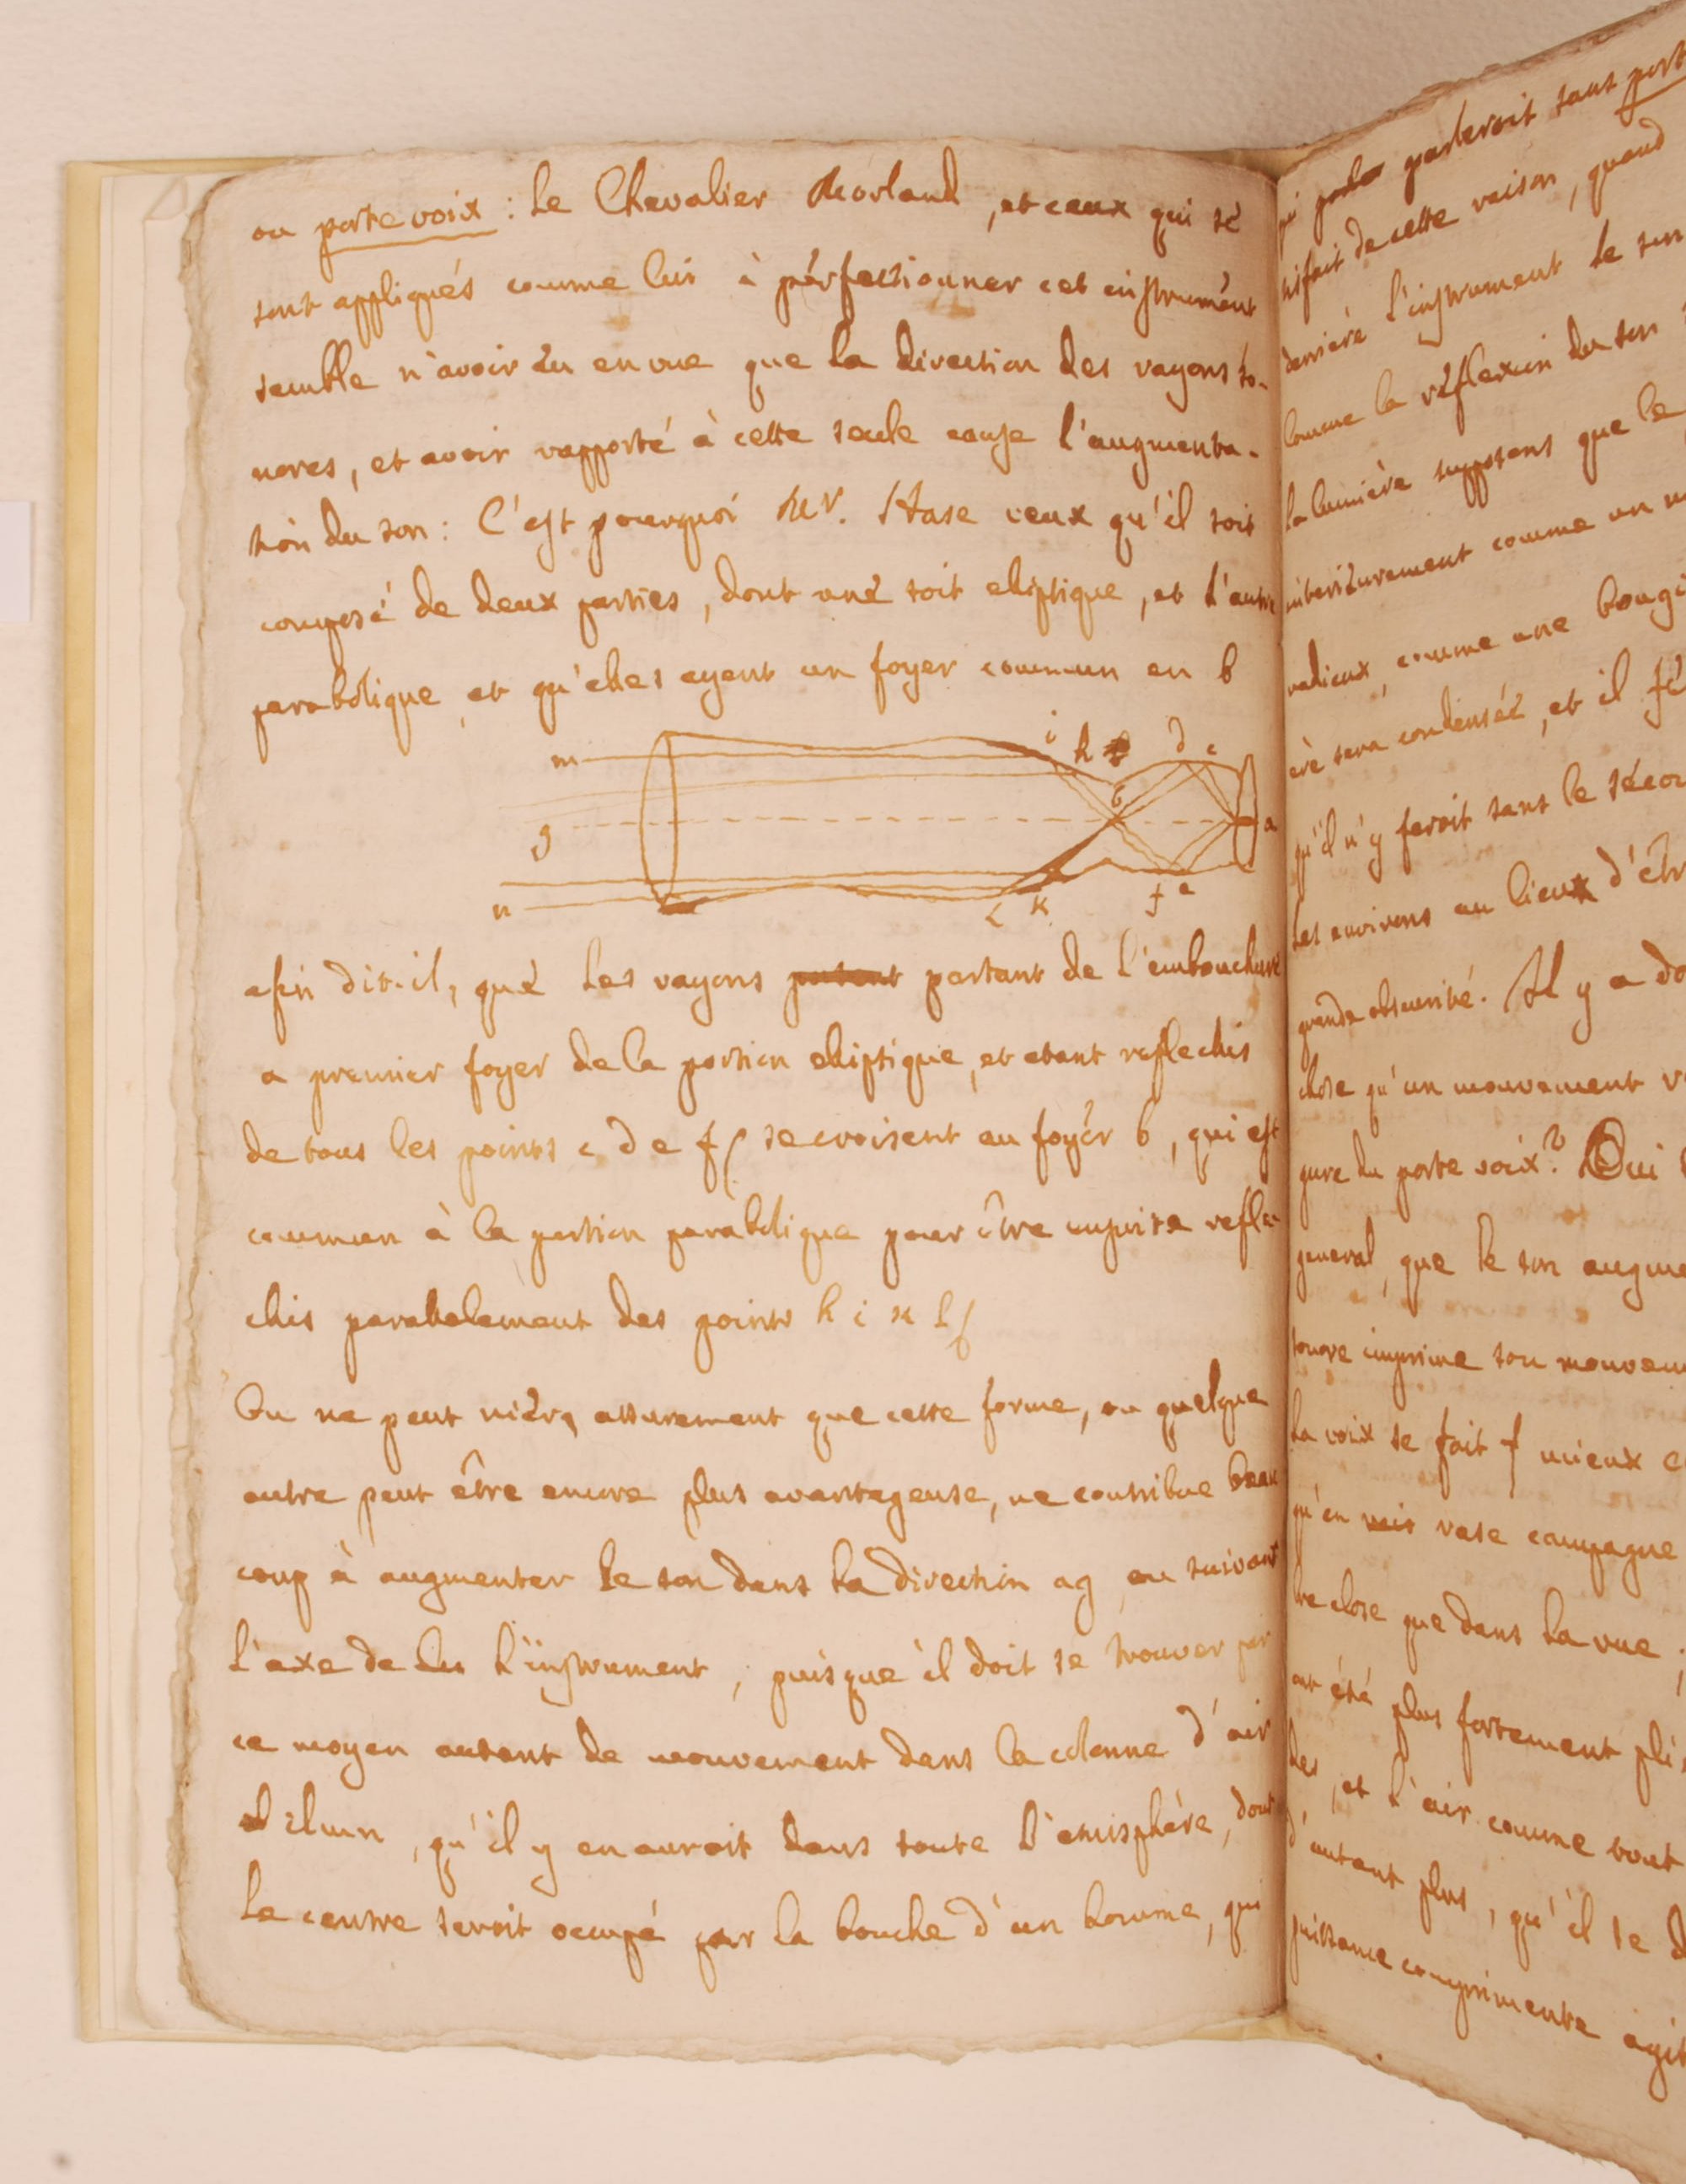 ou porte voix : Le Chevalier Morland, et ceux qui se
sont appliqués comme lui à pérfectionner cet instrumént
semble n'avoir eu en vue que la direction des rayons so-
nores, et avoir rapporté à cette seule cause l'augmenta-
tion du son : C'est pourquoi Mr. Hase veux qu'il soit
composé de deux parties, dont une soit eliptique, et l'autre
parabolique, et qu'elles ayent un foyer commun en b
m i h d c
b
g a
n l k f e
afin dit-il, que Les rayons partant de L'embouchure
a premier foyer de la portion eliptique, et etant reflechis
de tous les points c d e f se croisent au foyér b, qui est
commun à la portion parabolique pour être ensuite refle-
chis parabolement des points h i k l
On ne peut niér assurement que cette forme, ou quelque
autre peut être encore plus avantageuse, ne contribue beau
coup à augmenter le son dans la direction ag ou suivant
L'axe de L'instrument, puis que il doit se trouver par
ce moyen autant de mouvement dans la colonne d'air
ilmn, qu'il y en auroit dans toute L'emisphère, dont
Le centre seroit ocupé par la bouche d'un homme, qui
parleroit sans port
de cette raison, quand
derriere L'instrument le son
comme la réflexion du son
La lumière supposons que le
interieurement comme un
radieux, comme une bougi
ere sera condensée, et il
qu'il n'y feroit sans le sécou
Les environs au lieux d'êtr
grande obscurité. Il y a do
chose qu'un mouvement v
gure du porte voix? Oui
general, que le son augme
sonore imprime son mouvem
La voix se fait mieux
qu'en rase campagne
tre close que dans La rue
ont été plus fortement pli
des, et L'air comme tout
d'autant plus, qu'il se d
puissance comprimente agit